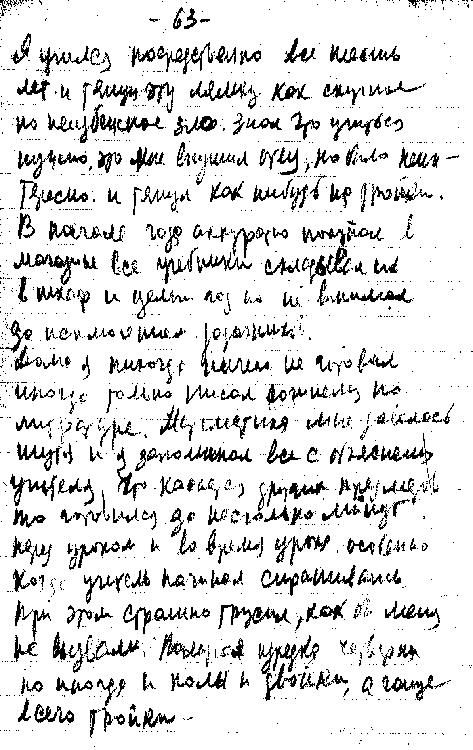 - 63 -
Я учился посредственно все шесть
лет и тянул эту лямку как скучное
но неизбежное зло. Знал что учиться
нужно, это мне внушил отец, но было неин-
тересно. и тянул как нибудь на тройки.
В начале года аккуратно покупал в
магазине все учебники складывал их
в шкаф и целый год их не вынимал
за исключением задачников.
Дома я никогда ничего не готовил
иногда только писал сочинения по
литературе. Математика мне давалась
шутя и я запоминал все с объяснений
учителя, что касается других предметов
то готовился за несколько минут
перед уроком и во время урока особенно
когда учитель начинал спрашивать
При этом страшно трусил, как бы меня
не вызвали. Получал изредка четверки
но иногда и колы и двойки, а чаще
всего тройки